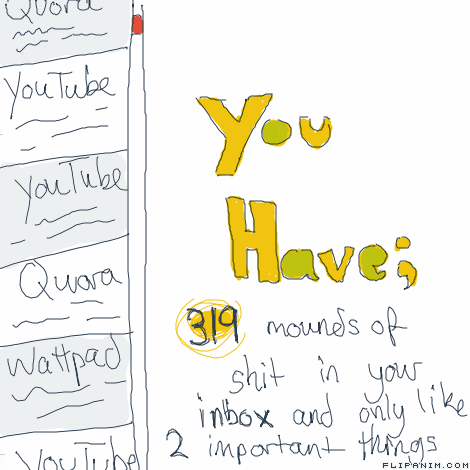 Quora
YouTube
YouTube
Quora
Wattpad
YouTube
You
Have;
319 mounds of
shit in your
inbox and only like
2 important things
FLIPANIM.COM